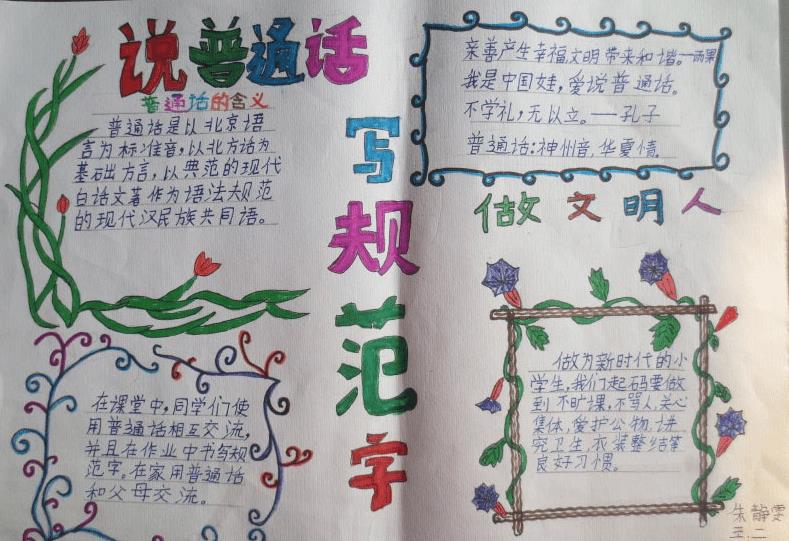 说普通话
普通话的含义
普通话是以北京语
言为标准音，以北方话为
基础出方言，以典范的现代
白话文著作为语法规范
的现代汉民族共同语。
写
规
范
字
亲善产生幸福，文明带来和谐。—雨果
我是中国娃，爱说普通话。
不学礼，无以立。——孔子
普通话：神州音，华夏情。
做文明人
在课堂中，同学们使
用普通话相互交流，
并且在作业中书写规
范字。在家用普通话
和父母交流。
做为新时代的小
学生，我们起码要做
到不旷课，不骂人，关心
集体，爱护公物，讲
究卫生，衣装整洁等
良好习惯。
朱静雯
三．二